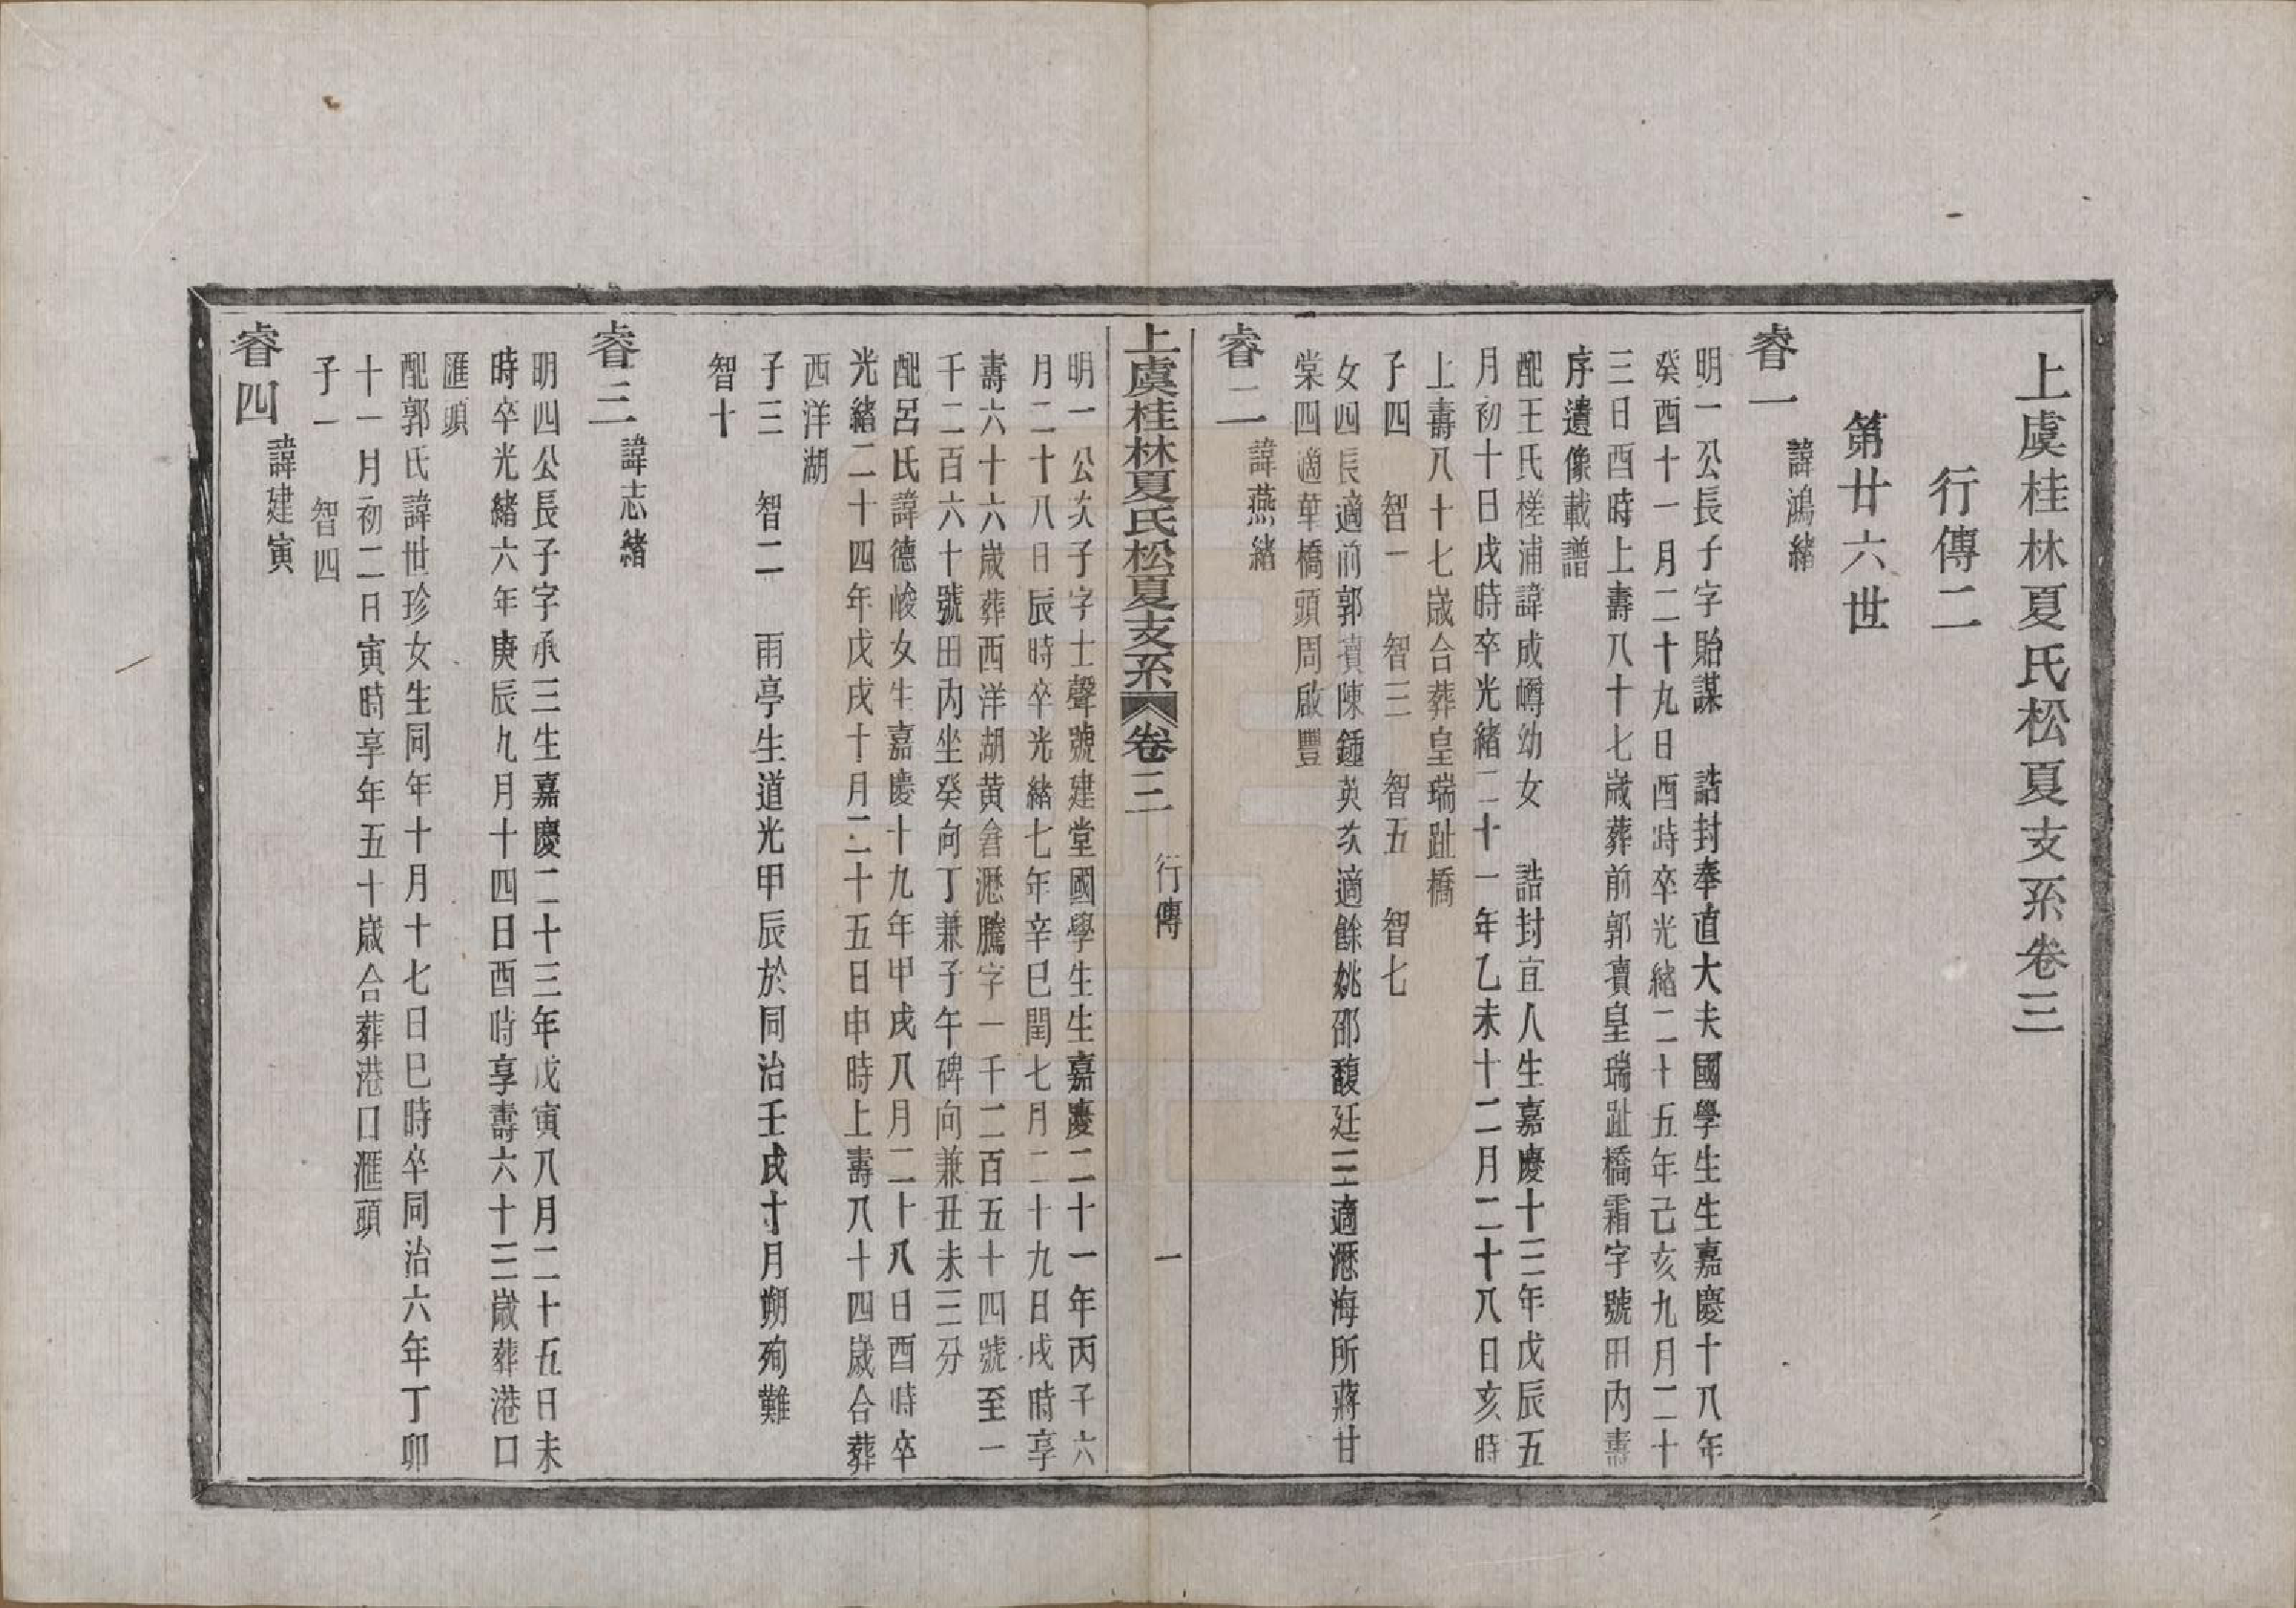 上虞桂林夏氏松夏支系卷三
行傳二
第廿六世
睿一
諱鴻緒
明一公長子字貽謀　誥封奉直大夫國學生生嘉慶十八年
癸酉十一月二十九日酉時卒光緒二十五年己亥九月二十
三日酉時上壽八十七歲葬前郭瀆皇瑞趾橋霜字號田內壽
序遺像載譜
配王氏槎浦諱成嶟幼女　誥封宜人生嘉慶十三年戊辰五
月初十日戌時卒光緒二十一年乙未十二月二十八日亥時
上壽八十七歲合葬皇瑞趾橋
子四　智一　智三　智五　智七
女四長適前郭瀆陳鍾英次適餘姚邵馥廷三適瀝海所蔣甘
棠四適華橋頭周啟豐
睿二
諱燕緒
上虞桂林夏氏松夏支系　卷三　行傳　一
明一公次子字士聲號建堂國學生生嘉慶二十一年丙子六
月二十八日辰時卒光緒七年辛巳閏七月二十九日戌時享
壽六十六歲葬西洋湖黃倉瀝騰字一千二百五十四號至一
千二百六十號田內坐癸向丁兼子午碑向兼丑未三分
配呂氏諱德峻女生嘉慶十九年甲戌八月二十八日酉時卒
光緒二十四年戊戌十月二十五日申時上壽八十四歲合葬
西洋湖
子三　智二　雨亭生道光甲辰於同治壬戌十月朔殉難
智十
睿三
諱志緒
明四公長子字承三生嘉慶二十三年戊寅八月二十五日未
時卒光緒六年庚辰九月十四日酉時享壽六十三歲葬港口
匯頭
配郭氏諱世珍女生同年十月十七日巳時卒同治六年丁卯
十一月初二日寅時享年五十歲合葬港口滙頭
子一　智四
睿四
諱建寅